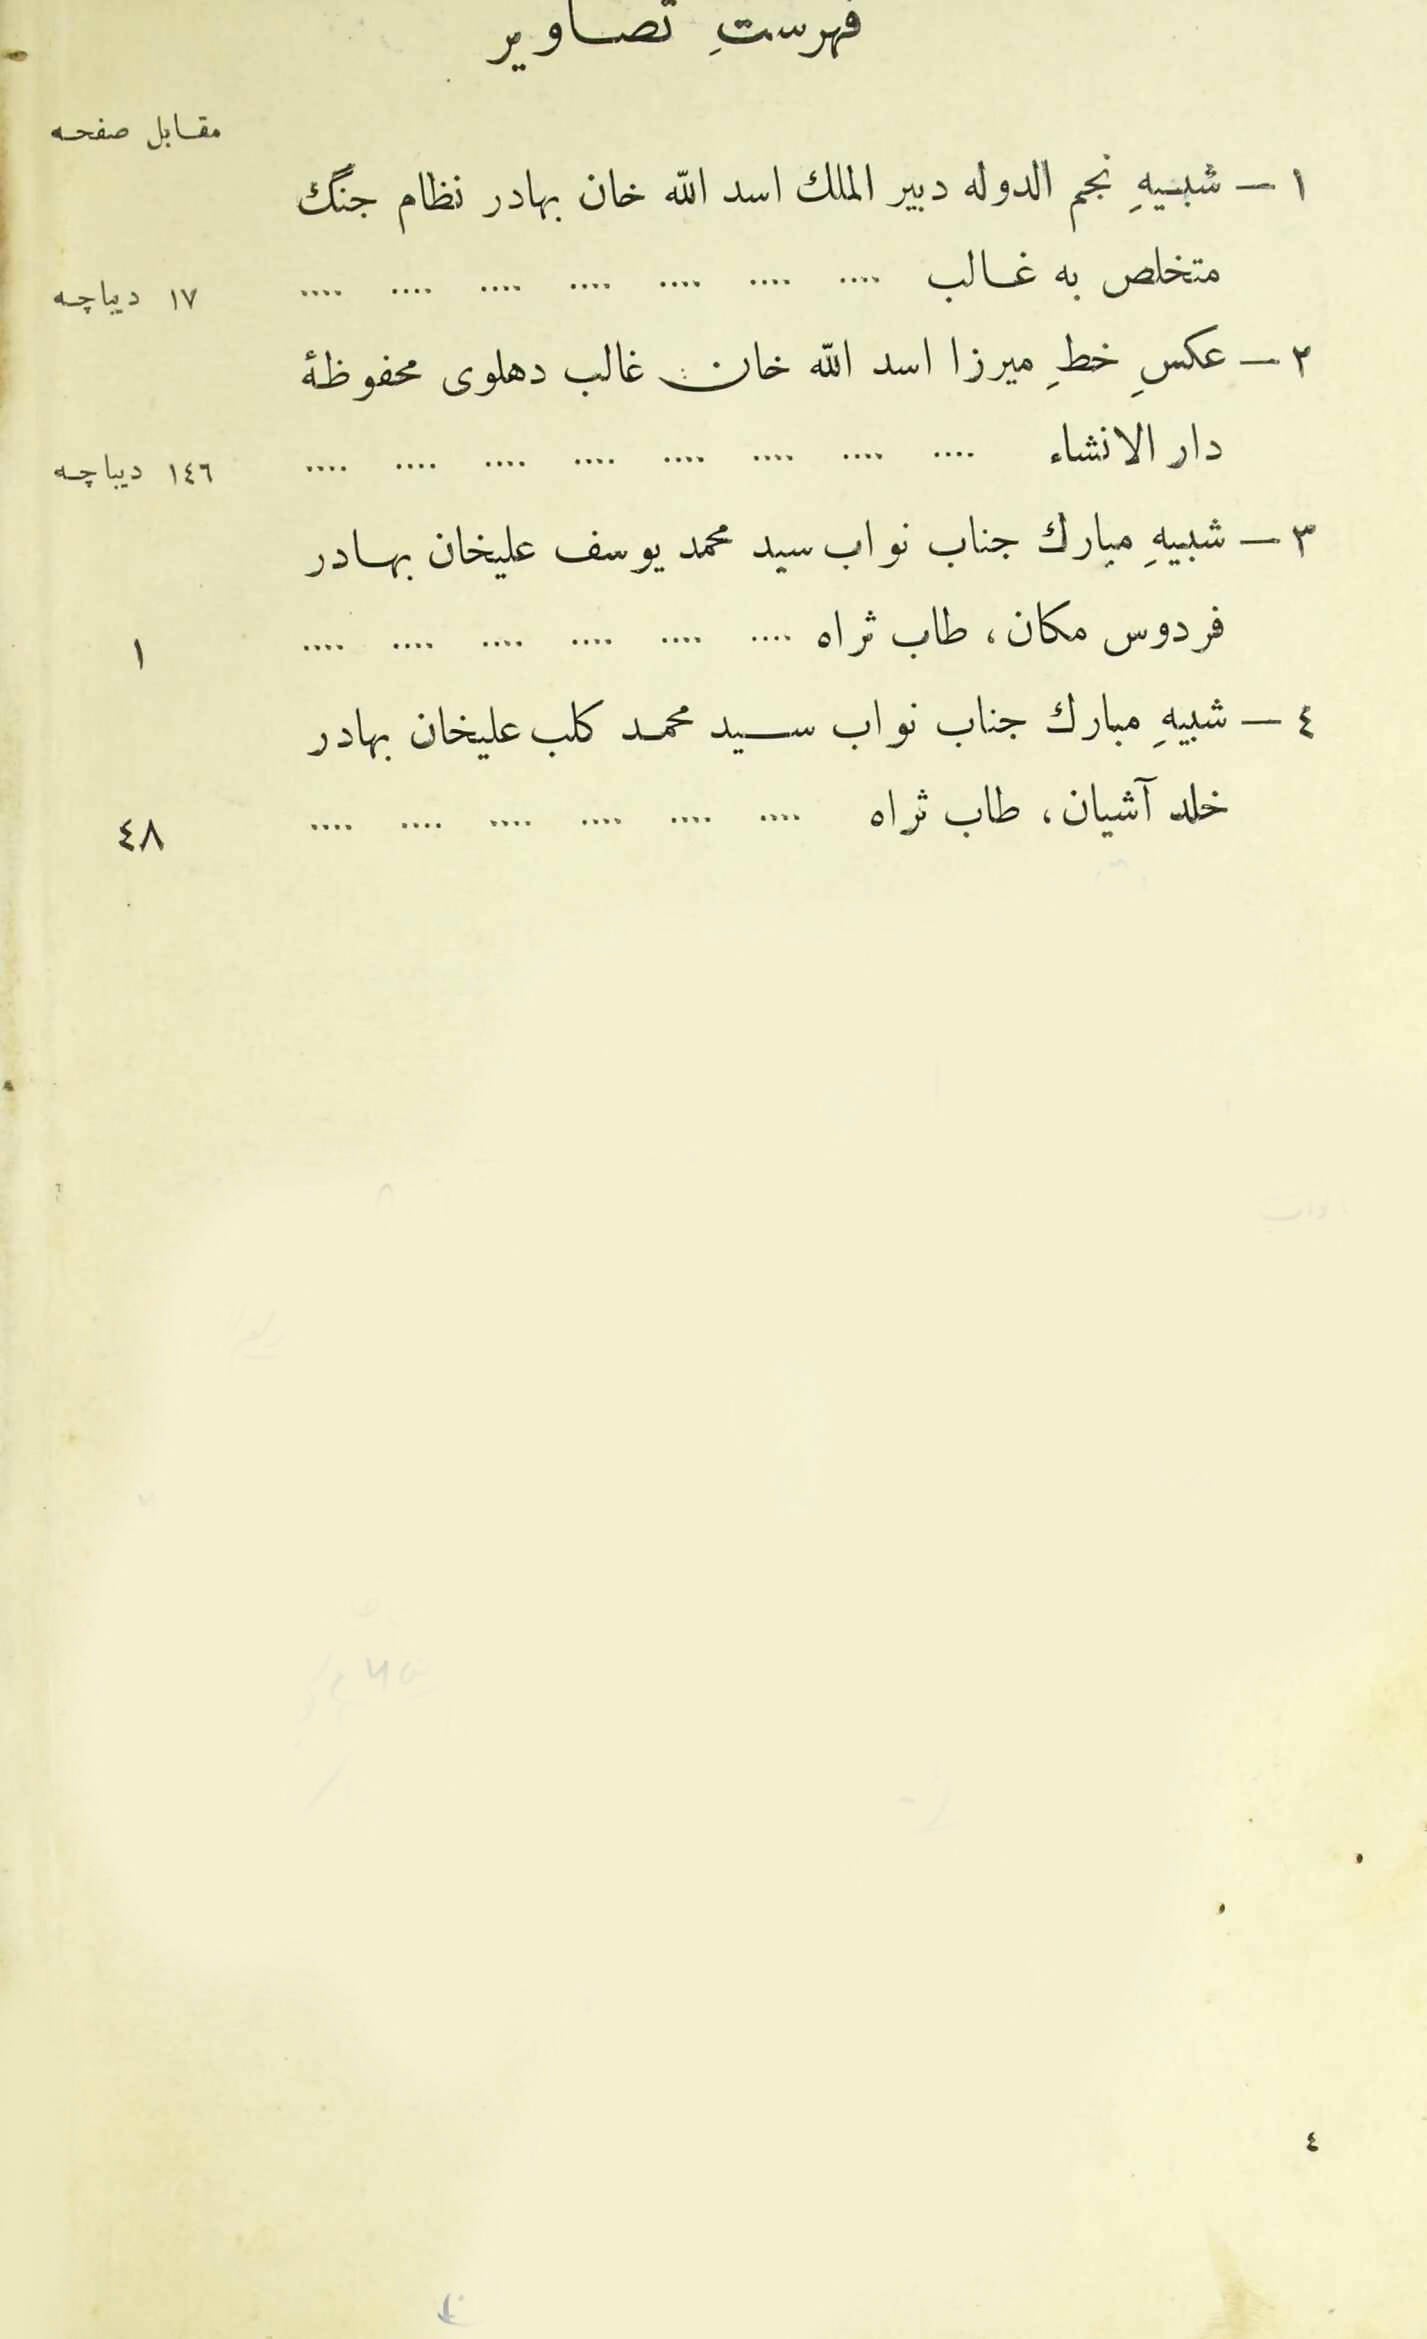 فہرستِ تصاویر
مقابل صفحہ
۱ — شبیہِ نجم الدولہ دبیر الملک اسد اللہ خان بہادر نظام جنگ
متخلص بہ غالب .... .... .... .... .... .... .... ۱۷ دیباچہ
۲ — عکسِ خطِ میرزا اسد اللہ خان غالب دہلوی محفوظۂ
دار الانشاء .... .... .... .... .... .... .... .... ١٤٦ دیباچہ
۳ — شبیہِ مبارک جناب نواب سید محمد یوسف علیخان بہادر
فردوس مکان، طاب ثراہ .... .... .... .... .... .... ۱
٤ — شبیہِ مبارک جناب نواب سید محمد کلب علیخان بہادر
خلد آشیان، طاب ثراہ .... .... .... .... .... .... ٤٨
٤